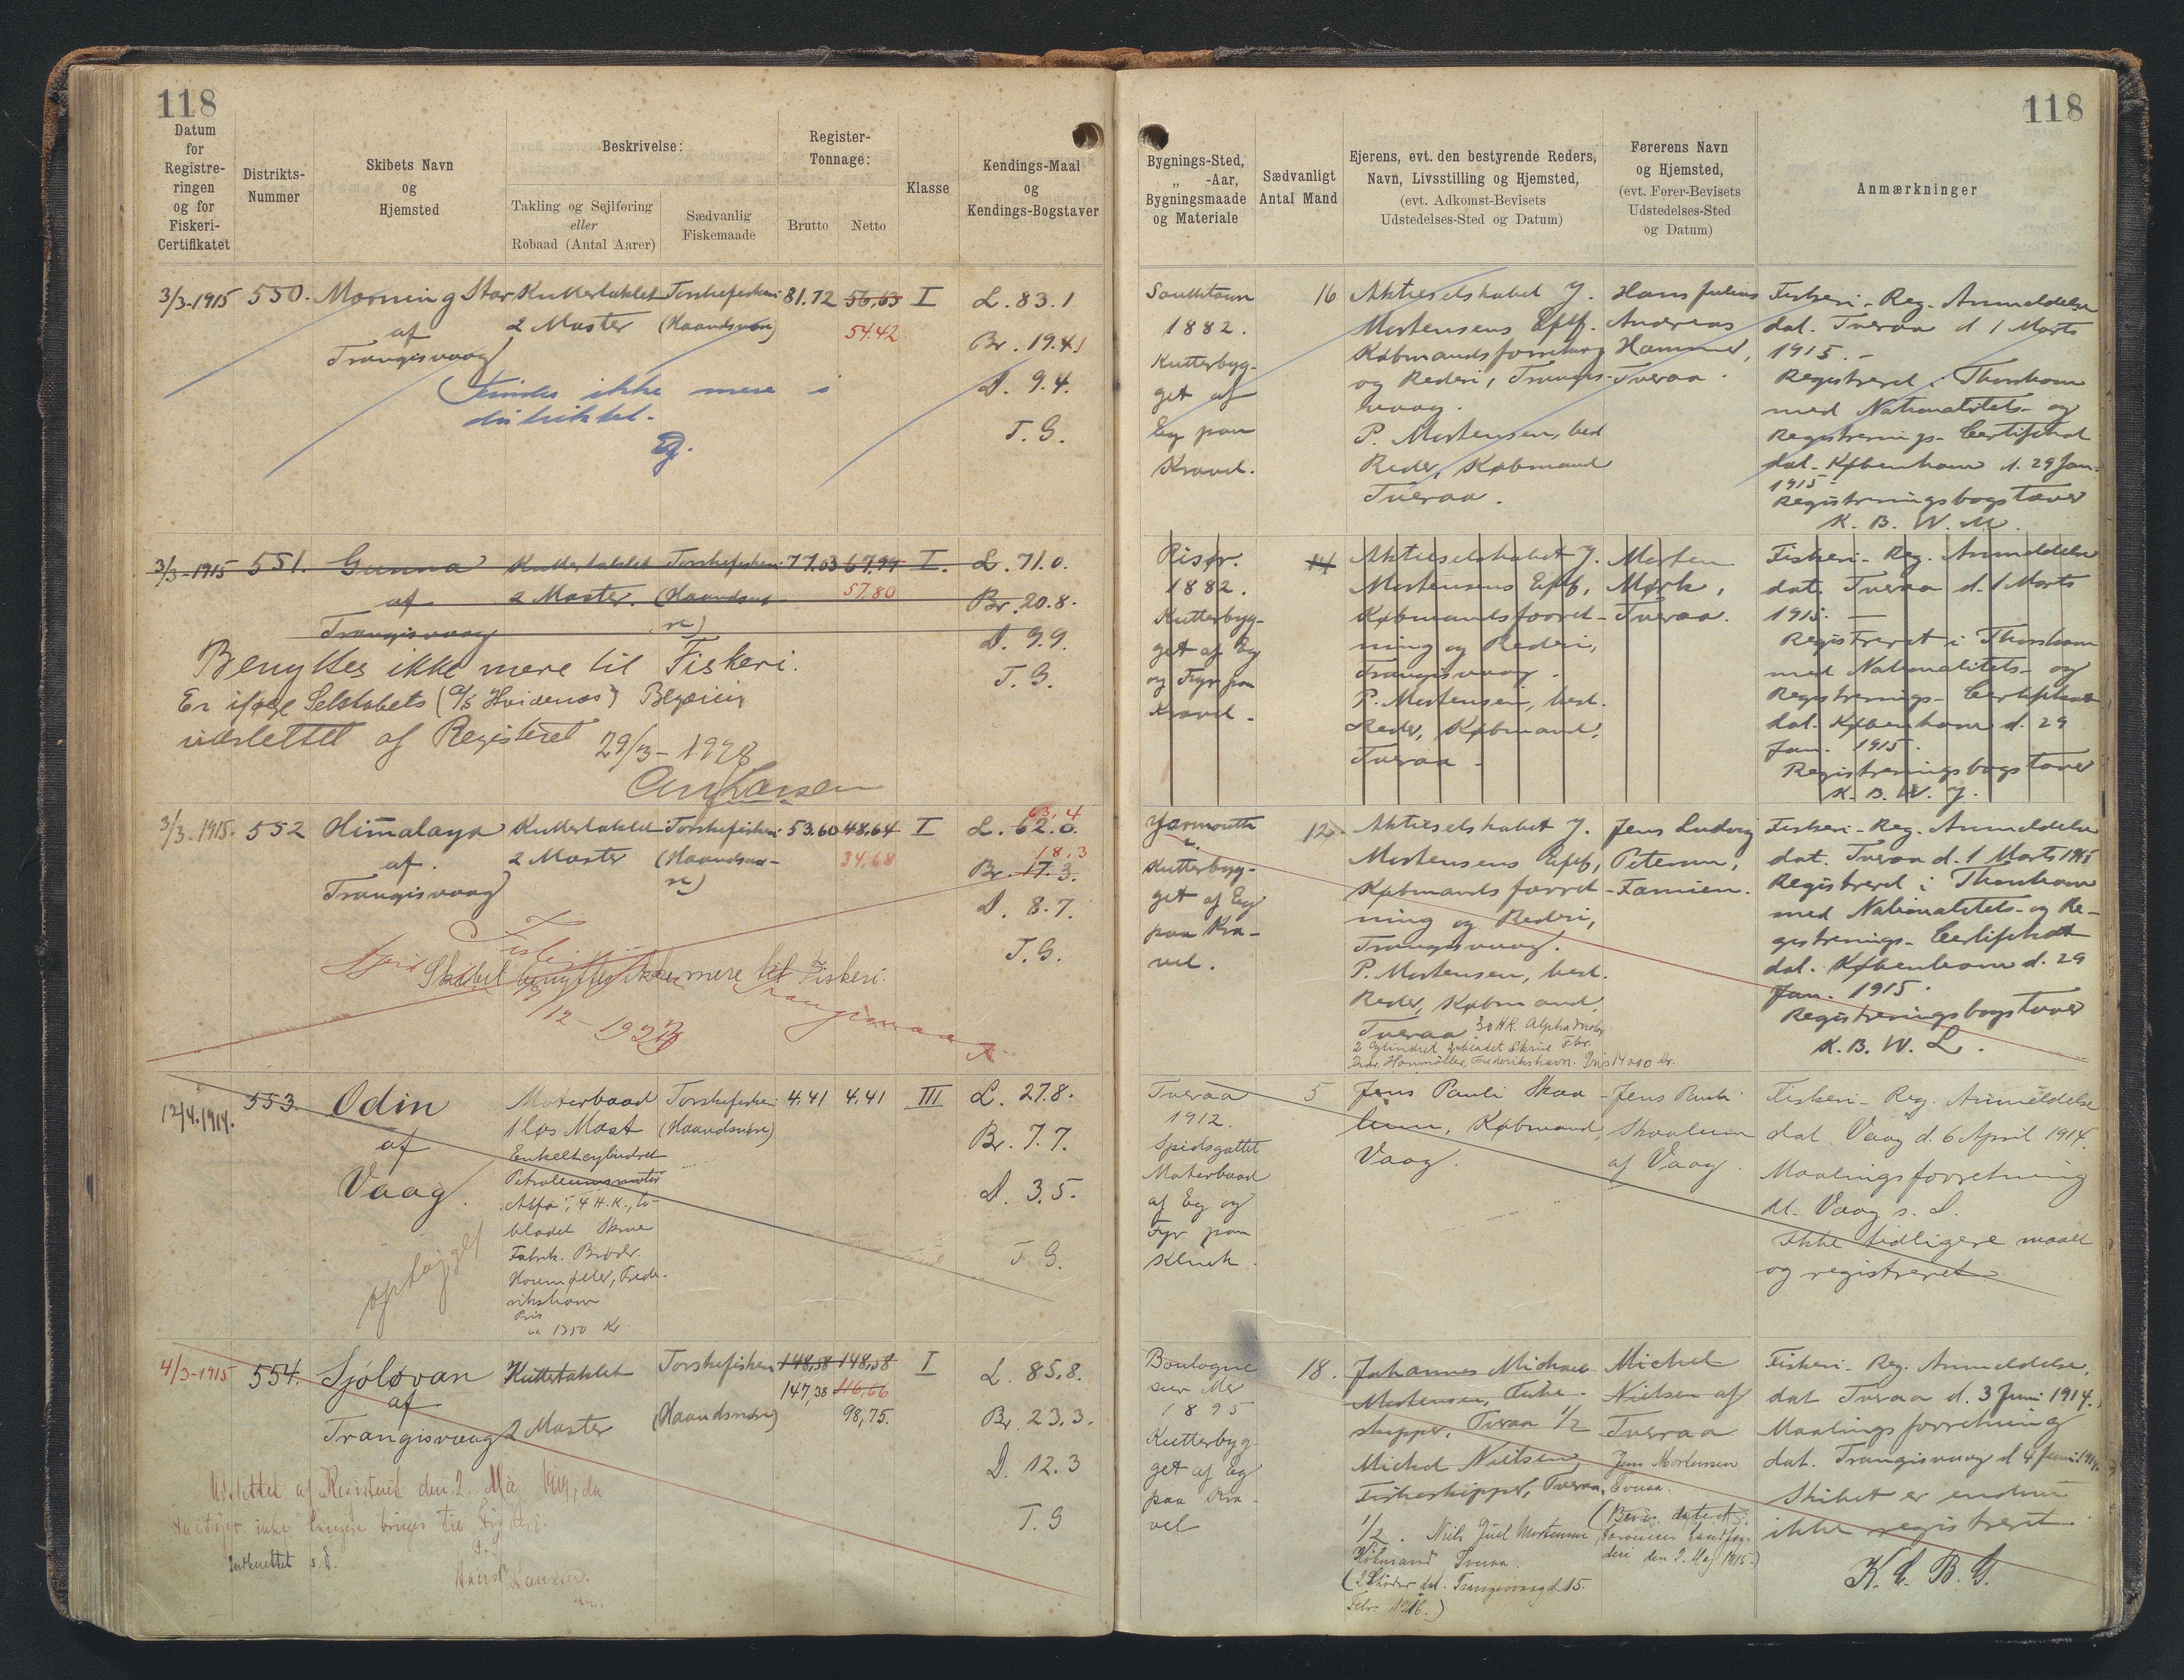 118
118
Datum
for
Registre-
ringen
og for
Fiskeri-
Certifikatet
Distrikts-
Nummer
Skibets Navn
og
Hjemsted
Beskrivelse:
Takling og Sejlføring
eller
Robaad (Antal Aarer)
Sædvanlig
Fiskemaade
Register-
Tonnage:
Brutto
Netto
Klasse
Kendings-Maal
og
Kendings-Bogstaver
Bygnings-Sted,
„ -Aar,
Bygningsmaade
og Materiale
Sædvanligt
Antal Mand
Ejerens, evt. den bestyrende Reders,
Navn, Livsstilling og Hjemsted,
(evt. Adkomst-Bevisets
Udstedelses-Sted og Datum)
Førerens Navn
og Hjemsted,
(evt. Fører-Bevisets
Udstedelses-Sted
og Datum)
Anmærkninger
3/3-1915
550.
Morning Star
af
Trangisvaag
Kuttertaklet
2 Master
Torskefiskeri
(Haandsnøre)
81.72
56,63
54.42
I
L. 83.1
Br. 19.4
D. 9.4.
T. G.
Findes ikke mere i
distriktet.
16
1882.
Kutterbyg-
get af
Eg paa
Kravel.
Aktieselskabet J.
Mortensens Eftf.
Købmandsforretning
og Rederi, Trangis-
vaag.
P. Mortensen, best
Reder, Købmand
Tveraa.
Hans Julius
Andreas
Hammer,
Tveraa.
Fiskeri-Reg. Anmeldelse
dat. Tveraa d. 1 Marts
1915.-
Registreret i Thorshavn
med Nationalitets- og
Registrerings-Certifikat
dat. København d. 29 Jan.
1915-
Registreringsbogstaver
K. B. W. M.
3/3-1915
551.
Gunna
af
Trangisvaag
Kuttertaklet
2 Master.
Torskefiskeri
(Haandsnø
re)
77.03
67,94
57,80
I.
L. 71.0.
Br. 20.8.
D. 9.9.
T. G.
Benyttes ikke mere til Fiskeri.
Er ifølge Selskabets (A/S Hvidenæs) Begæring
udslettet af Registeret
29/3-1928
Risør.
1882.
Kutterbyg-
get af Eg
og Fyr paa
Kravel-
14
Aktieselskabet J.
Mortensens Eftf,
Købmandsforret-
ning og Rederi,
Trangisvaag.
P. Mortensen, best.
Reder, Købmand,
Tveraa-
Morten
Mørk,
Tveraa.
Fiskeri-Reg. Anmeldelse
dat. Tveraa d. 1 Marts
1915.-
Registreret i Thorshavn
med Nationalitets- og
Registrerings-Certifikat
dat. København d. 29
Jan. 1915.
Registreringsbogstaver
K. B. W. J.
3/3-1915.
552
Himalaya
af.
Trangisvaag
Kuttertaklet
2 Master
Torskefiskeri
(Haandsnø-
re)
53.60
48,64
34,68
I
63,4
L. 62.0.
18,3
Br. 17.3.
D. 8.7.
T. G.
Skibet benyttes ikke mere til Fiskeri.
Yarmouth
Kutterbyg-
get af Eg
paa Kra-
vel.
12.
Aktieselskabet J.
Mortensens Eftf,
Købmandsforret-
ning og Rederi,
Trangisvaag.
P. Mortensen, best.
Reder, Købmand,
Tveraa
30 HK. Alpha Motor
2 Cylindret 2 bladet Skrue Fbr.
Brdr. Houmøller, Frederikshavn. Pris 14000 kr.
Jens Ludvig
Petersen,
Famien.
Fiskeri-Reg. Anmeldelse
dat. Tveraa d. 1 Marts 1915
Registreret i Thorshavn
med Nationalitets- og Re-
gistrerings-Certifikat
dat. København d. 29
Jan. 1915.
Registreringsbogstaver
K. B. W. L.
12/4.1914.
553.
Odin
af
Vaag.
optaget
Motorbaad
1 løs Mast
Enkeltcylindret
Petroleumsmotor
"Alfa", 4 H.K., to-
bladet Skrue
Fabrik. Brødr.
Houmøller, Frede-
rikshavn
Pris
ca 1350 Kr
Torskefiskeri
(Haandsnøre)
4,41
4,41
III
L. 27.8.
Br. 7.7.
D. 3.5.
T G.
Tveraa
1912.
Spidsgattet
Motorbaad
af Eg og
Fyr paa
Klink.
5
Jens Pauli Skaa-
lum, Købmand,
Vaag.
Jens Pauli
Skaalum
af Vaag.
Fiskeri-Reg. Anmeldelse
dat. Vaag d. 6 April 1914.
Maalingsforretning
dt. Vaag s. D.
Ikke tidligere maalt
og registreret
4/3-1915
554.
Sjóløvan
af
Trangisvaag
Kuttertaklet
2 Master
Torskefiskeri
(Haandsnøre)
148,58
148,58
147,38
116,66
98,75.
I
L. 85,8.
Br. 23.3.
D. 12.3
T. G
Udslettet af Registeret den 2. Maj 1919, da
Fartøjet ikke længere bruges til Fiskeri.
Boulogne
sur Mer
1895
Kutterbyg-
get af Eg
paa Kra-
vel
18.
Johannes Michael
Mortensen, Fiske-
skipper, Tveraa 1/2
Michel Nielsen,
Fiskeskipper, Tveraa,
1/2. Niels Juel Mortensen
Købmand Tveraa.
(2 Skøder dat. Trangisvaag d. 15.
Febr. 1916.)
Michel
Nielsen af
Tveraa
Jens Mortensen
Tveraa.
(Bevis dateret
Færøernes Landfog-
deri den 2. Maj 1915.)
Fiskeri-Reg. Anmeldelse,
dat Tveraa d. 3 Juni 1914.
Maalingsforretning
dat. Trangisvaag d 4 Juni 1914.
Skibet er endnu
ikke registreret